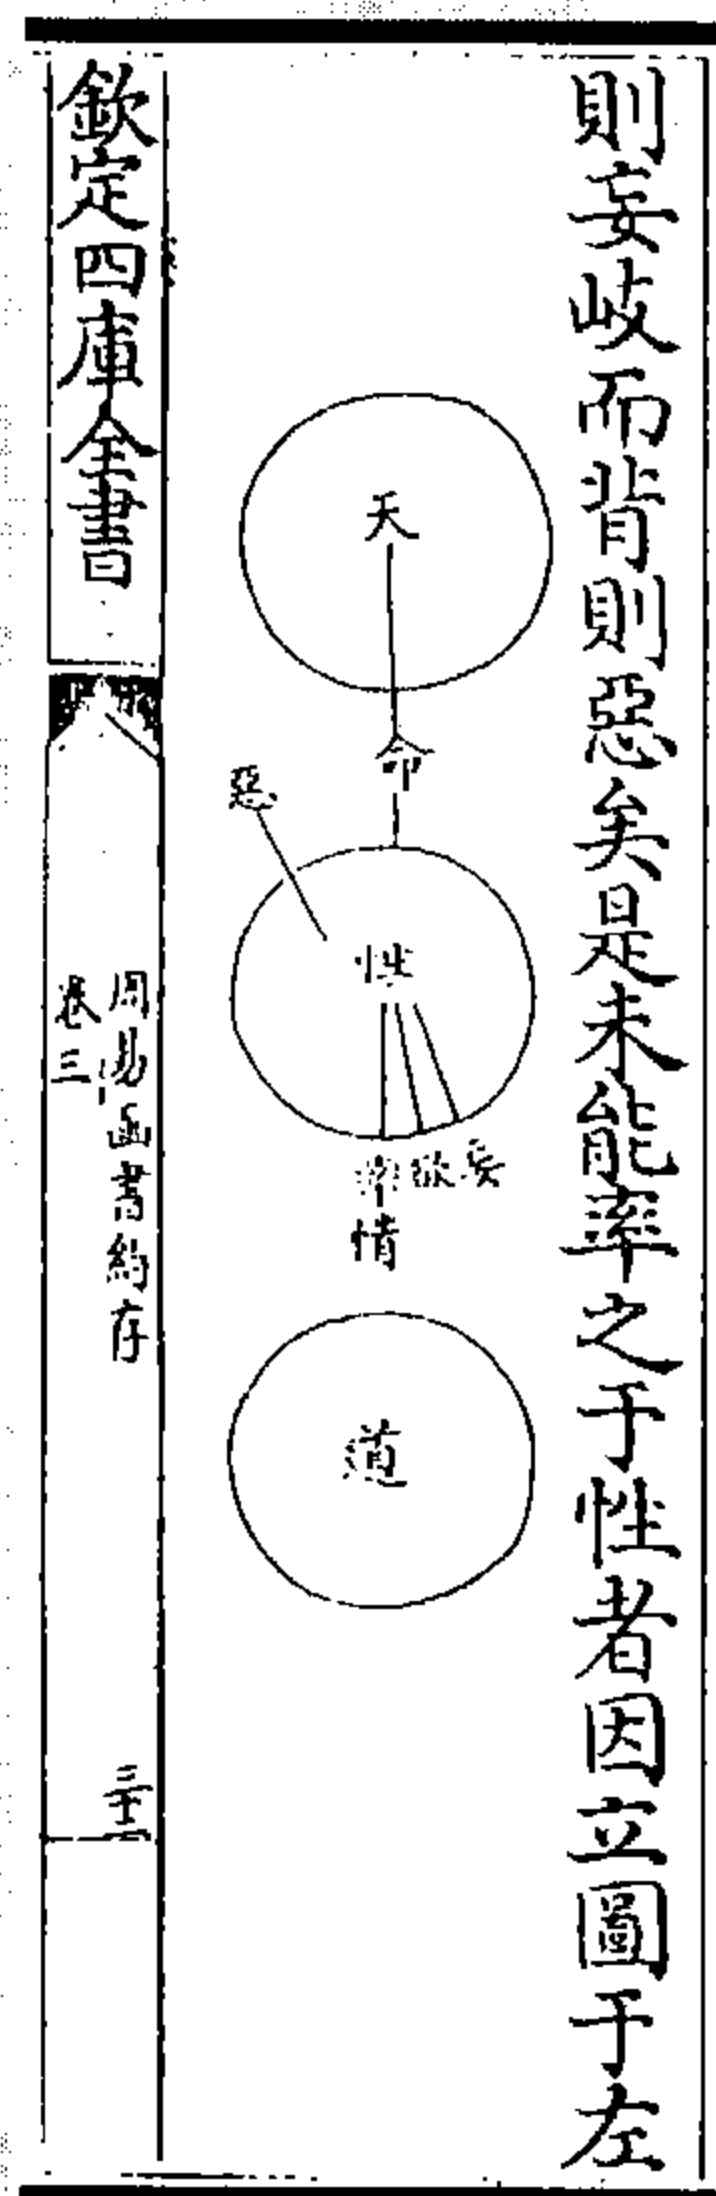 則妄歧而背則惡矣是未能率之于性者因立圖于左
天
命
惡
性
率欲妄
情
道
欽定四庫全書
周易函書約存
卷三